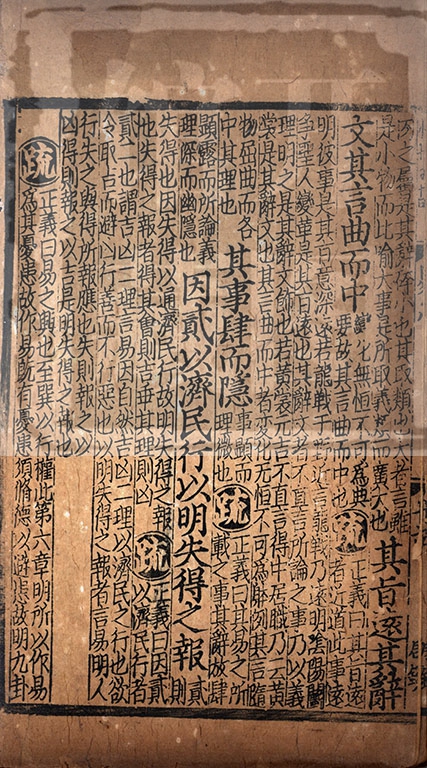 豕之屬是其辭碎小也其取類大者言雖
是小物而比喻大事是所取義類而廣大也
其旨遠其辭
文其言曲而中
變化無恒不可為典
要故其言曲而中也
疏
正義曰其旨遠
者近道此事遠
明彼事是其旨意深遠若龍戰于野近言龍戰乃遠明陰陽鬬
爭聖人變革是其旨遠也其辭文者不直言所論之事乃以義
理明之是其辭文飾也若黃裳元吉不直言得中居職乃云黃
裳是其辭文也其言曲而中者變化无恒不可為體例其言隨
物屈曲而各
中其理也
其事肆而隱
事顯而
理微也
疏
正義曰其易之所
載之事其辭放肆
顯露而所論義
理深而幽隱也
因貳以濟民行以明失得之報
貳則
失得也因失得以通濟民行故明失得之報
也失得之報者得其會則吉乖其理則凶
疏
正義曰因貳
以濟民行者
貳二也謂吉凶二理言易因自然吉凶二理以濟民之行也欲
令取吉而避凶行善而不行惡也以明失得之報者言易明人
行失之與得所報應也失則報之以
凶得則報之以吉是明失得之報也
疏
正義曰易之興也至巽以行權此第六章明所以作易
為其憂患故作易既有憂患須脩德以避患故明九卦